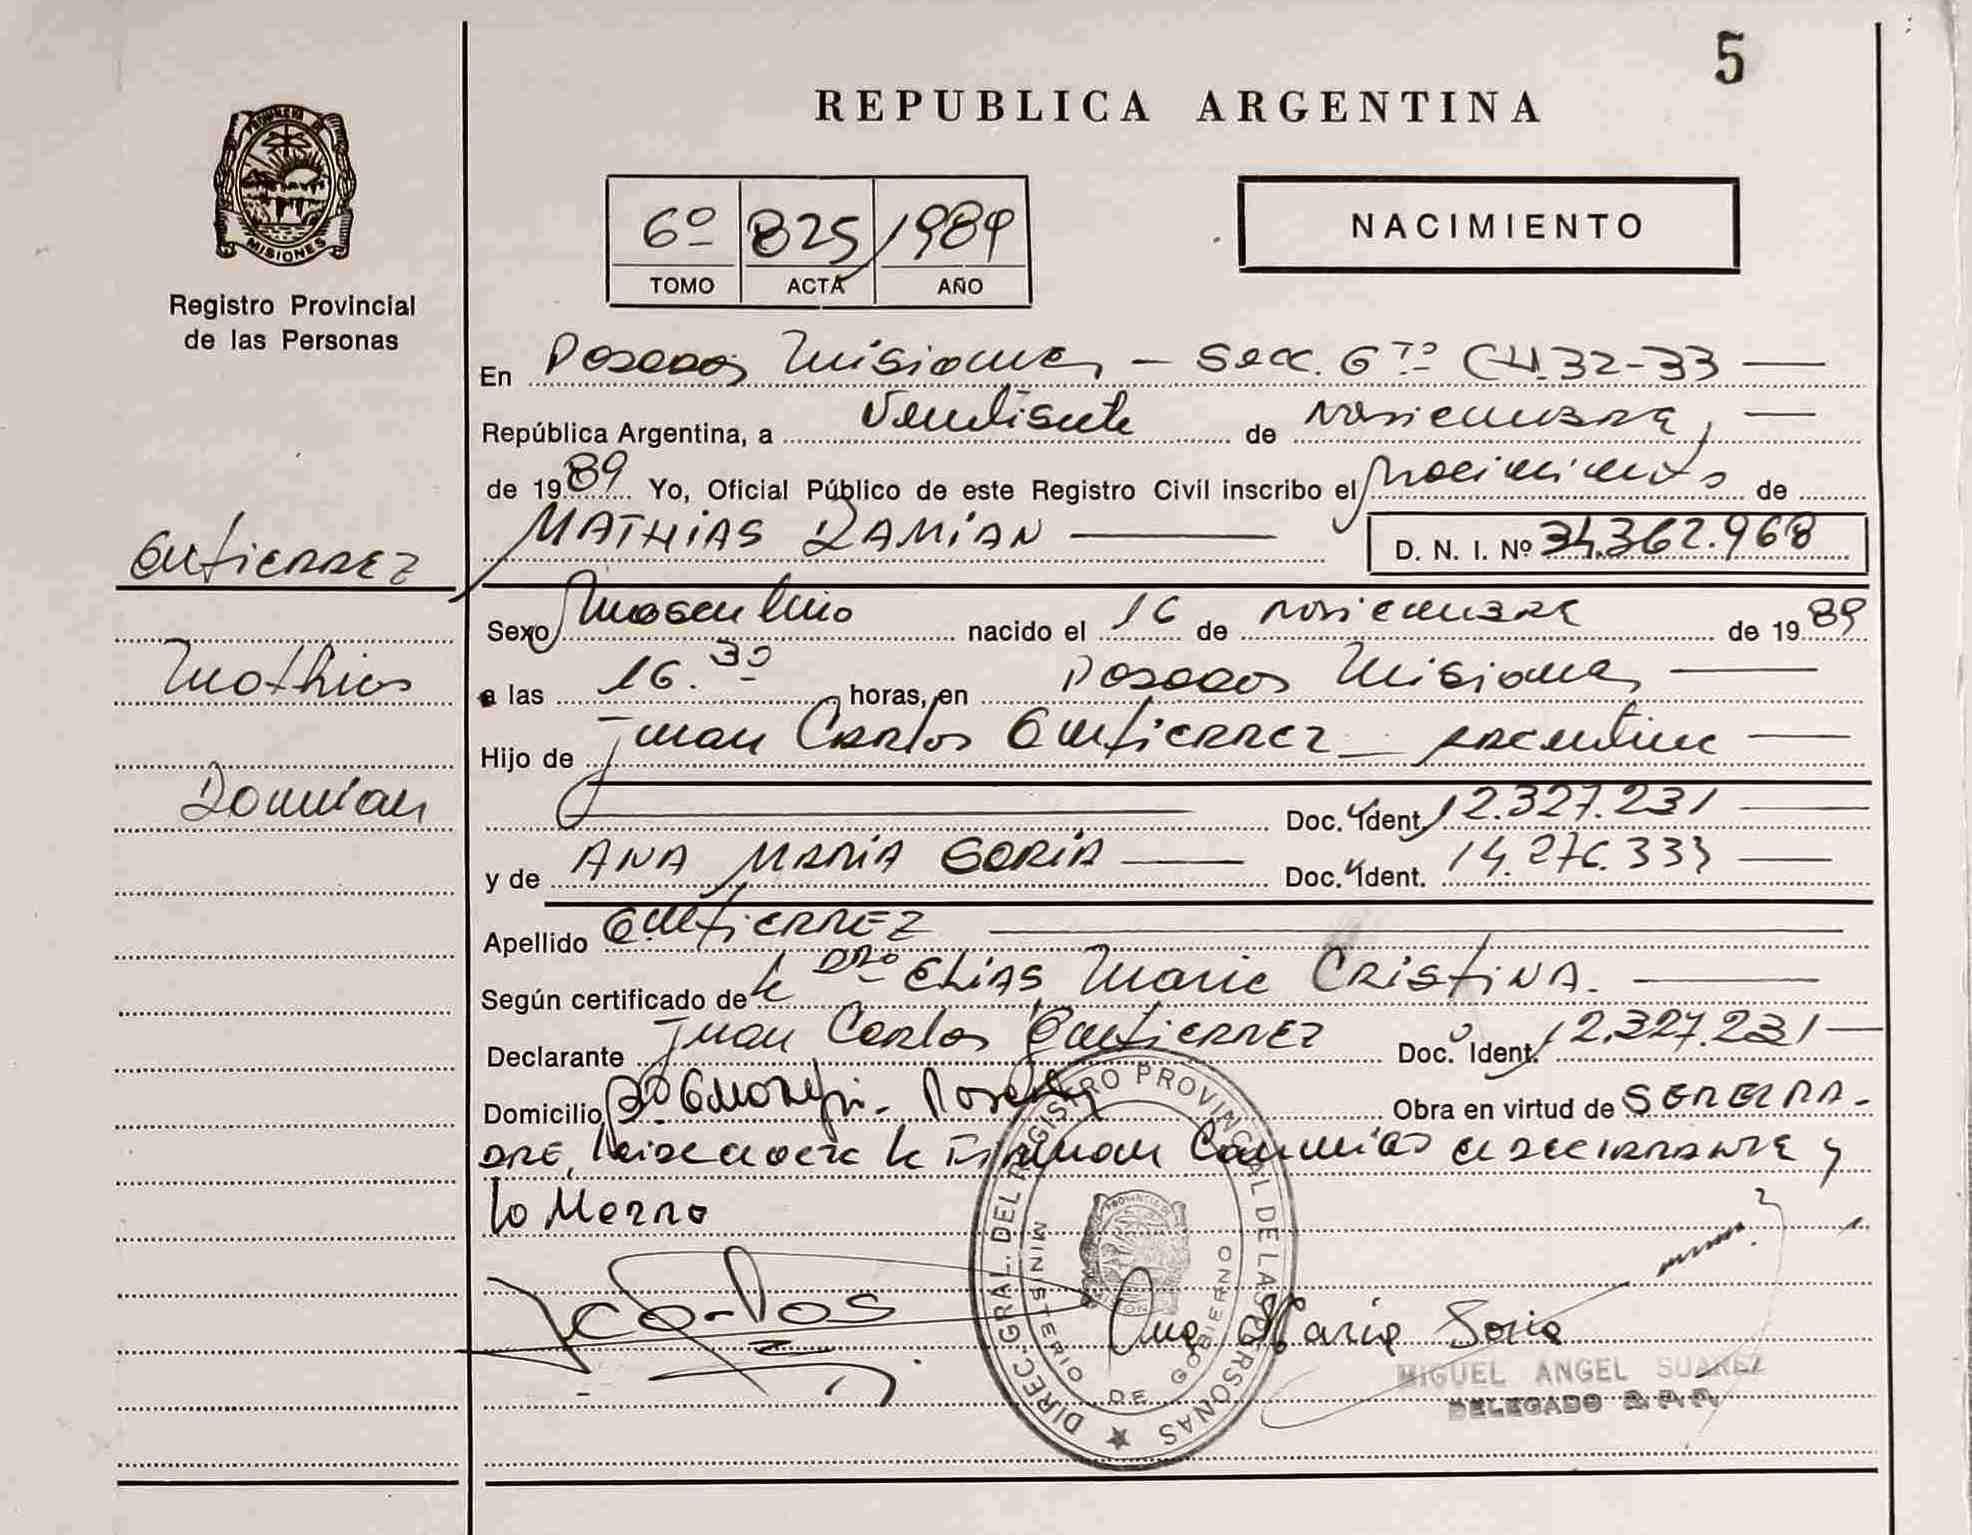 5
REPUBLICA ARGENTINA
PROVINCIA DE
MISIONES
Registro Provincial
de las Personas
6º 825 1989
TOMO ACTA AÑO
NACIMIENTO
En Posadas Misiones - Secc. 6ta CH.32-33
República Argentina, a Veintisiete de noviembre,
de 1989 Yo, Oficial Público de este Registro Civil inscribo el nacimiento de
MATHIAS DAMIAN D. N. I. Nº 34.362.968
Gutierrez
Mathias
Damian
Sexo Masculino nacido el 16 de noviembre de 1989
a las 16.30 horas, en Posadas Misiones
Hijo de Juan Carlos Gutierrez argentino
Doc. Ident. 12.327.231
y de ANA MARIA SORIA Doc. Ident. 14.276.333
Apellido Gutierrez
Según certificado de la Dra ELIAS Maria CRISTINA.
Declarante Juan Carlos Gutierrez Doc. Ident. 12.327.231
Domicilio Posadas Obra en virtud de SER EL PA-
DRE, leida el acta la firman Conmigo el declarante y
la Madre
JCarlos
Ana Maria Soria
MIGUEL ANGEL SUAREZ
DELEGADO R.P.P.
DIREC. GRAL. DEL REGISTRO PROVINCIAL DE LAS PERSONAS
MINISTERIO DE GOBIERNO